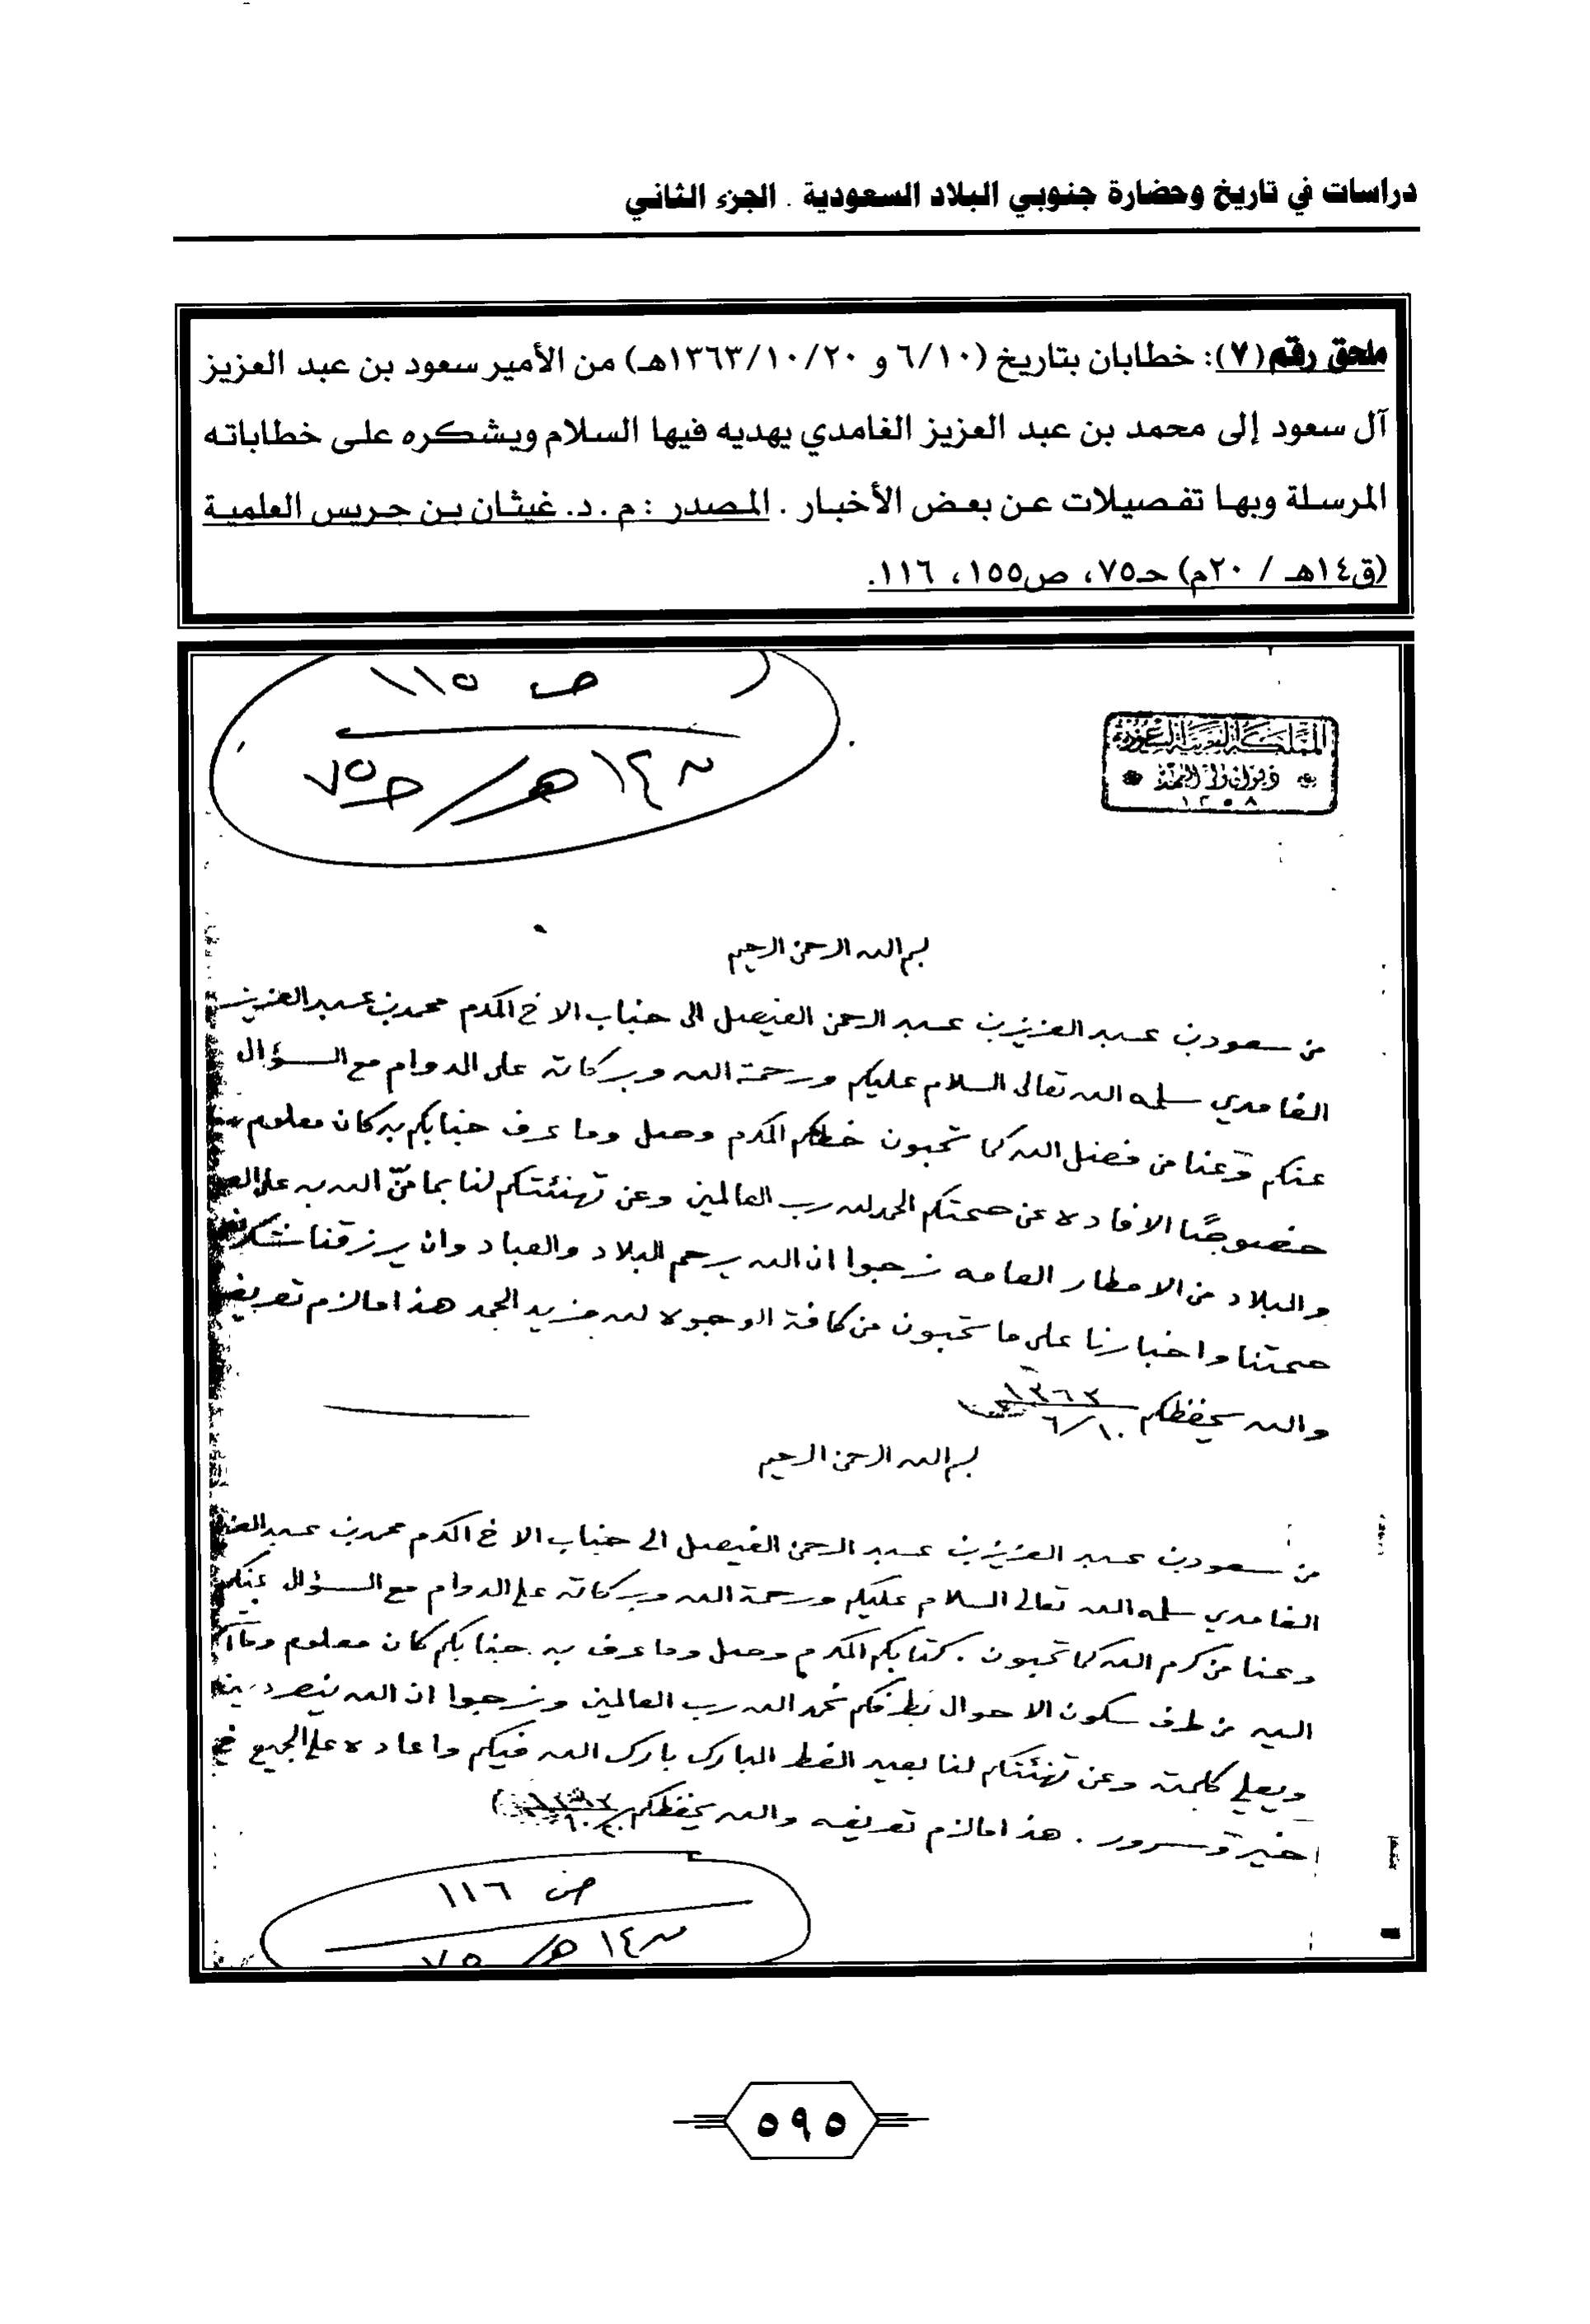 دراسات في تاريخ وحضارة جنوبي البلاد السعودية . الجزء الثاني
ملحق رقم (٧): خطابان بتاريخ (٦/١٠ و ١٣٦٣/١٠/٢٠هـ) من الأمير سعود بن عبد العزيز
آل سعود إلى محمد بن عبد العزيز الغامدي يهديه فيها السلام ويشكره على خطاباته
المرسلة وبها تفصيلات عن بعض الأخبار . المصدر : م . د. غيثان بن جريس العلمية
(ق١٤هـ / ٢٠م) حـ٧٥، ص١٥٥، ١١٦.
ص ١١٥
ق ١٤ هـ / حـ ٧٥
المملكة العربية السعودية
ديوان ولي العهد
١٣٥٨
بسم الله الرحمن الرحيم
من سعود بن عبد العزيز بن عبد الرحمن الفيصل الى جناب الاخ المكرم محمد بن عبد العزيز
الغامدي سلمه الله تعالى السلام عليكم ورحمة الله وبركاته على الدوام مع السؤال
عنكم وعنا من فضل الله كما تحبون خطكم المكرم وصل وما عرف جنابكم به كان معلوم
خصوصًا الافاده عن صحتكم الحمد لله رب العالمين وعن تهنئتكم لنا بما منّ الله به على
والبلاد من الامطار العامه نرجوا ان الله يرحم البلاد والعباد وان يرزقنا شكر
صحتنا واخبارنا على ما تحبون من كافة الوجوه لله مزيد الحمد هذا مالزم تعريفه
والله يحفظكم ١٣٦٣
٦/١٠
بسم الله الرحمن الرحيم
من سعود بن عبد العزيز بن عبد الرحمن الفيصل الى جناب الاخ المكرم محمد بن عبد
الغامدي سلمه الله تعالى السلام عليكم ورحمة الله وبركاته على الدوام مع السؤال عنكم
وعنا من كرم الله كما تحبون . كتابكم المكرم وصل وما عرف به جنابكم كان معلوم
اليه من طرف سكون الاحوال بطرفكم نحمد الله رب العالمين ونرجوا ان الله ينصر دينه
ويعلي كلمته وعن تهنئتكم لنا بعيد الفطر المبارك بارك الله فيكم واعاده على الجميع في
خير وسرور . هذا مالزم تعريفه والله يحفظكم
ص ١١٦
ق ١٤ هـ / ٧٥
٥٩٥